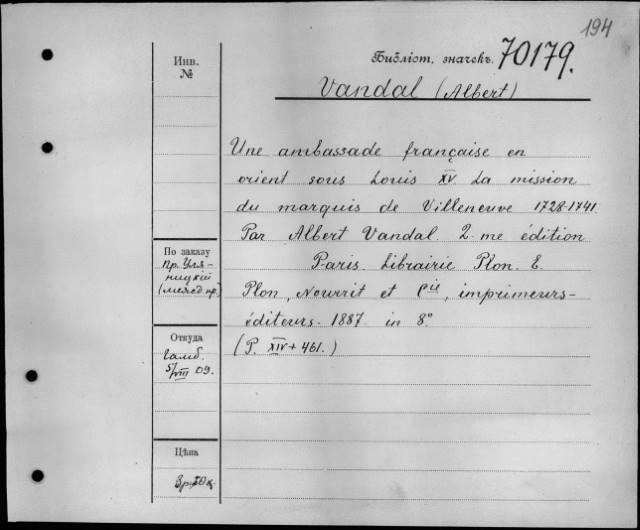 194
Библіот. значекъ. 70179.
Vandal (Albert)
Инв.
№
Une ambassade française en
orient sous Louis XV. La mission
du marquis de Villeneuve 1728-1741.
Par Albert Vandal. 2-me édition
Paris. Librairie Plon. E.
Plon, Nourrit et Cie, imprimeurs-
éditeurs. 1887. in 8°
(P. XIV + 461.)
По заказу
пр. Уля-
ницкій
Откуда
Гамб.
5/VIII 09.
Цѣна